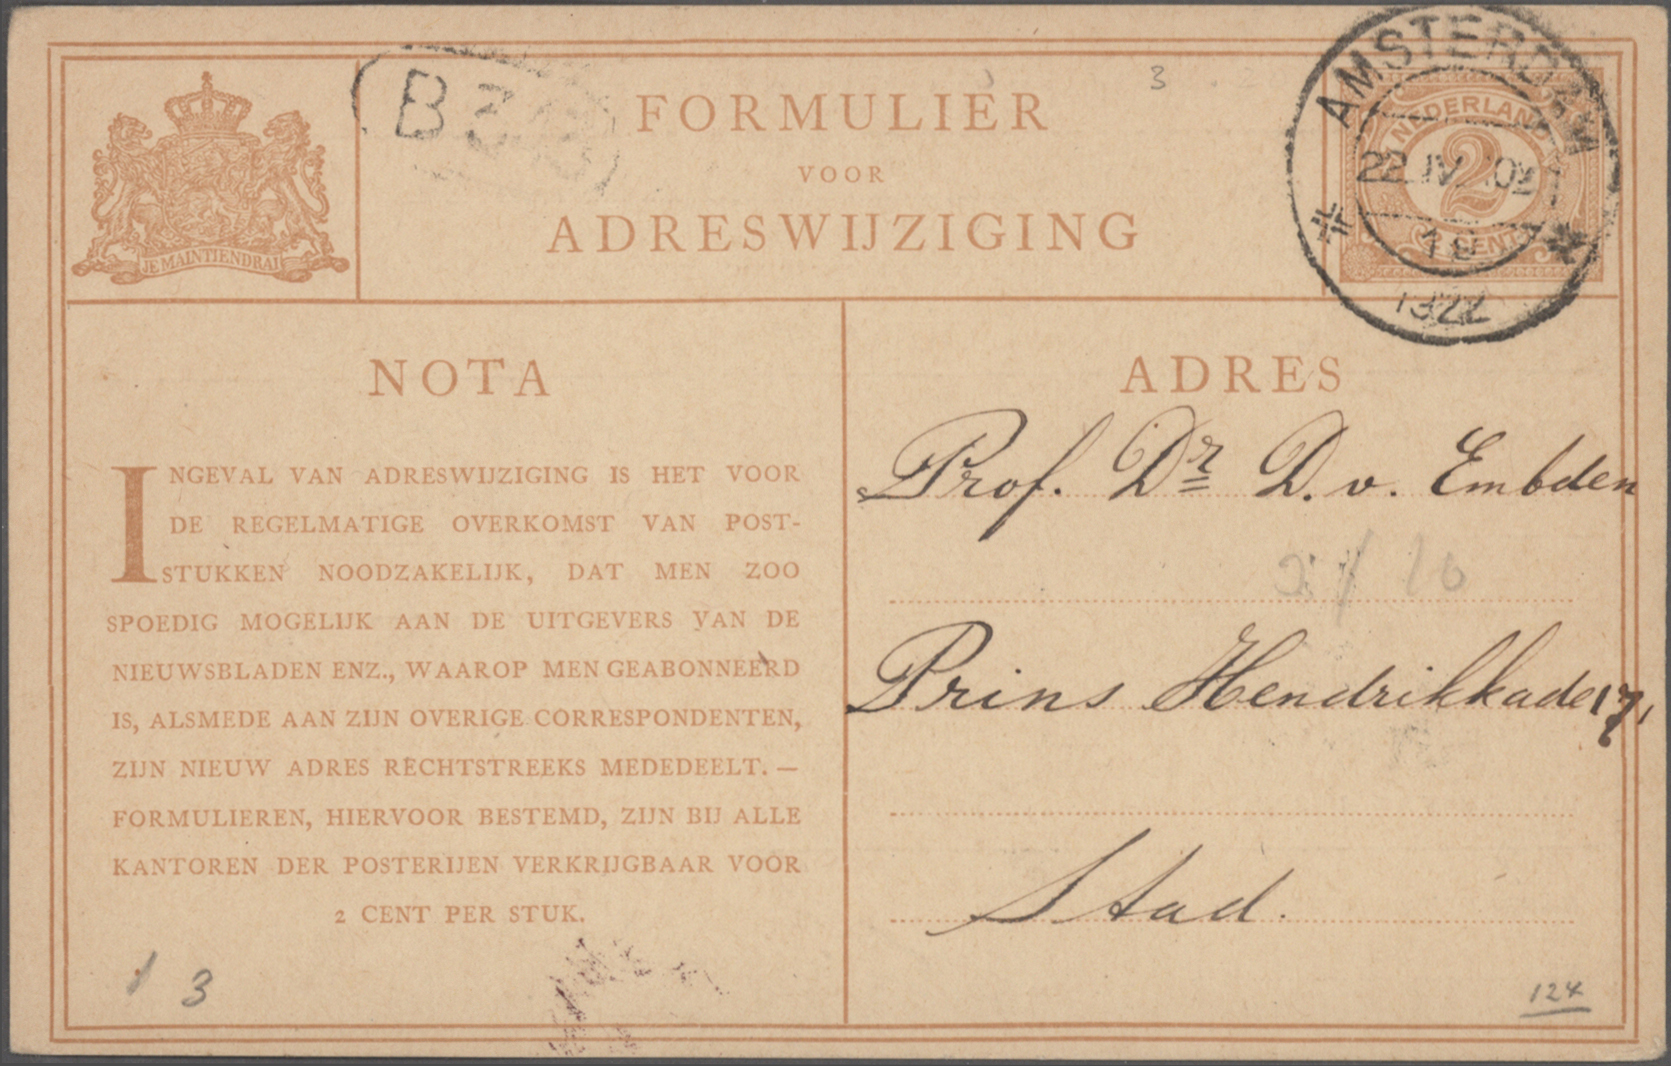 JE MAINTIENDRAI
B
3
FORMULIER
VOOR
ADRESWIJZIGING
AMSTERDAM
22 IV 10½
18
1922
NEDERLAND
2
CENT
NOTA
INGEVAL VAN ADRESWIJZIGING IS HET VOOR
DE REGELMATIGE OVERKOMST VAN POST-
STUKKEN NOODZAKELIJK, DAT MEN ZOO
SPOEDIG MOGELIJK AAN DE UITGEVERS VAN DE
NIEUWSBLADEN ENZ., WAAROP MEN GEABONNEERD
IS, ALSMEDE AAN ZIJN OVERIGE CORRESPONDENTEN,
ZIJN NIEUW ADRES RECHTSTREEKS MEDEDEELT. —
FORMULIEREN, HIERVOOR BESTEMD, ZIJN BIJ ALLE
KANTOREN DER POSTERIJEN VERKRIJGBAAR VOOR
2 CENT PER STUK.
1 3
ADRES
Prof. Dr D. v. Embden
Prins Hendrikkade
Stad.
124